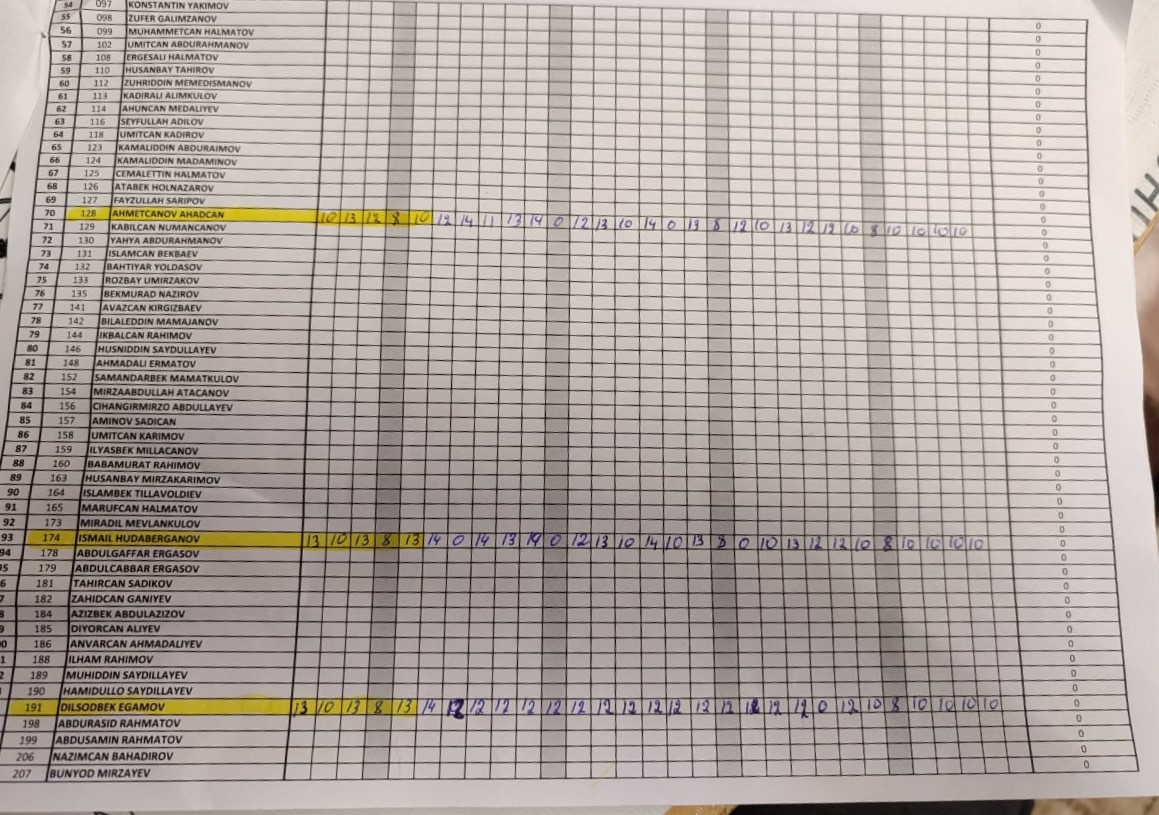 54 097 KONSTANTIN YAKIMOV
55 098 ZUFER GALIMZANOV 0
56 099 MUHAMMETCAN HALMATOV 0
57 102 UMITCAN ABDURAHMANOV 0
58 108 ERGESALI HALMATOV 0
59 110 HUSANBAY TAHIROV 0
60 112 ZUHRIDDIN MEMEDISMANOV 0
61 113 KADIRALI ALIMKULOV 0
62 114 AHUNCAN MEDALIYEV 0
63 116 SEYFULLAH ADILOV 0
64 118 UMITCAN KADIROV 0
65 123 KAMALIDDIN ABDURAIMOV 0
66 124 KAMALIDDIN MADAMINOV 0
67 125 CEMALETTIN HALMATOV 0
68 126 ATABEK HOLNAZAROV 0
69 127 FAYZULLAH SARIPOV 0
70 128 AHMETCANOV AHADCAN 10 13 12 8 10 12 14 11 13 14 0 12 13 10 14 0 13 8 12 10 13 12 12 10 8 10 10 10 10 0
71 129 KABILCAN NUMANCANOV 0
72 130 YAHYA ABDURAHMANOV 0
73 131 ISLAMCAN BEKBAEV 0
74 132 BAHTIYAR YOLDASOV 0
75 133 ROZBAY UMIRZAKOV 0
76 135 BEKMURAD NAZIROV 0
77 141 AVAZCAN KIRGIZBAEV 0
78 142 BILALEDDIN MAMAJANOV 0
79 144 IKBALCAN RAHIMOV 0
80 146 HUSNIDDIN SAYDULLAYEV 0
81 148 AHMADALI ERMATOV 0
82 152 SAMANDARBEK MAMATKULOV 0
83 154 MIRZAABDULLAH ATACANOV 0
84 156 CIHANGIRMIRZO ABDULLAYEV 0
85 157 AMINOV SADICAN 0
86 158 UMITCAN KARIMOV 0
87 159 ILYASBEK MILLACANOV 0
88 160 BABAMURAT RAHIMOV 0
89 163 HUSANBAY MIRZAKARIMOV 0
90 164 ISLAMBEK TILLAVOLDIEV 0
91 165 MARUFCAN HALMATOV 0
92 173 MIRADIL MEVLANKULOV 0
93 174 ISMAIL HUDABERGANOV 13 10 13 8 13 14 0 14 13 14 0 12 13 10 14 10 13 8 0 10 13 12 12 10 8 10 10 10 10 0
94 178 ABDULGAFFAR ERGASOV 0
5 179 ABDULCABBAR ERGASOV 0
6 181 TAHIRCAN SADIKOV 0
7 182 ZAHIDCAN GANIYEV 0
8 184 AZIZBEK ABDULAZIZOV 0
9 185 DIYORCAN ALIYEV 0
0 186 ANVARCAN AHMADALIYEV 0
1 188 ILHAM RAHIMOV 0
2 189 MUHIDDIN SAYDILLAYEV 0
190 HAMIDULLO SAYDILLAYEV 0
191 DILSODBEK EGAMOV 13 10 13 8 13 14 12 12 12 12 12 12 12 12 12 12 12 12 12 12 12 0 12 10 8 10 10 10 10 0
198 ABDURASID RAHMATOV 0
199 ABDUSAMIN RAHMATOV 0
206 NAZIMCAN BAHADIROV 0
207 BUNYOD MIRZAYEV 0